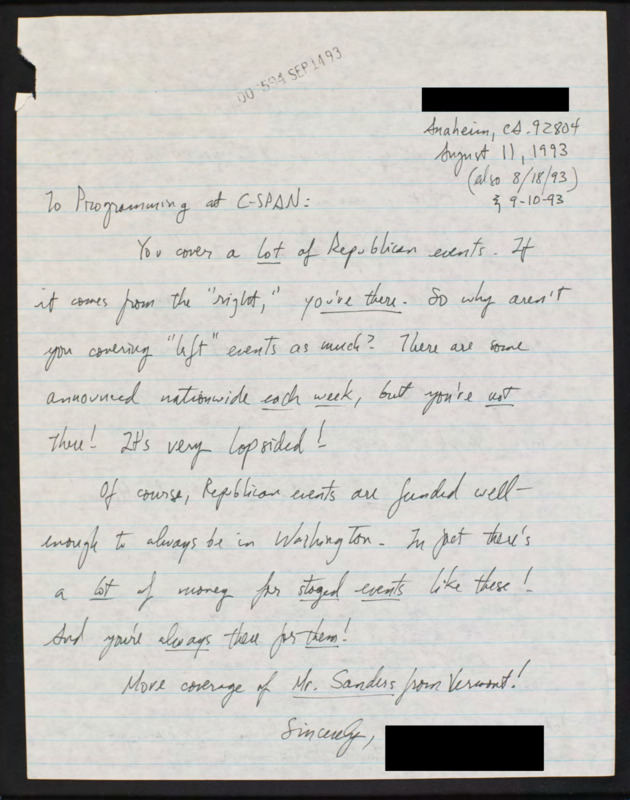 00 594 SEP 14 93
Anaheim, CA. 92804
August 11, 1993
(also 8/18/93)
& 9-10-93
To Programming at C-SPAN:
You cover a lot of Republican events. If
it comes from the "right," you're there. So why aren't
you covering "left" events as much? There are some
announced nationwide each week, but you're not
there! It's very lopsided!
Of course, Republican events are funded well-
enough to always be in Washington. In fact there's
a lot of money for staged events like these!
And you're always there for them!
More coverage of Mr. Sanders from Vermont!
Sincerely,